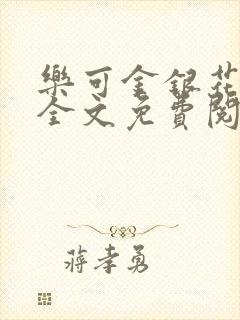 樂可金銀花
全文免費閱
蔣孝勇